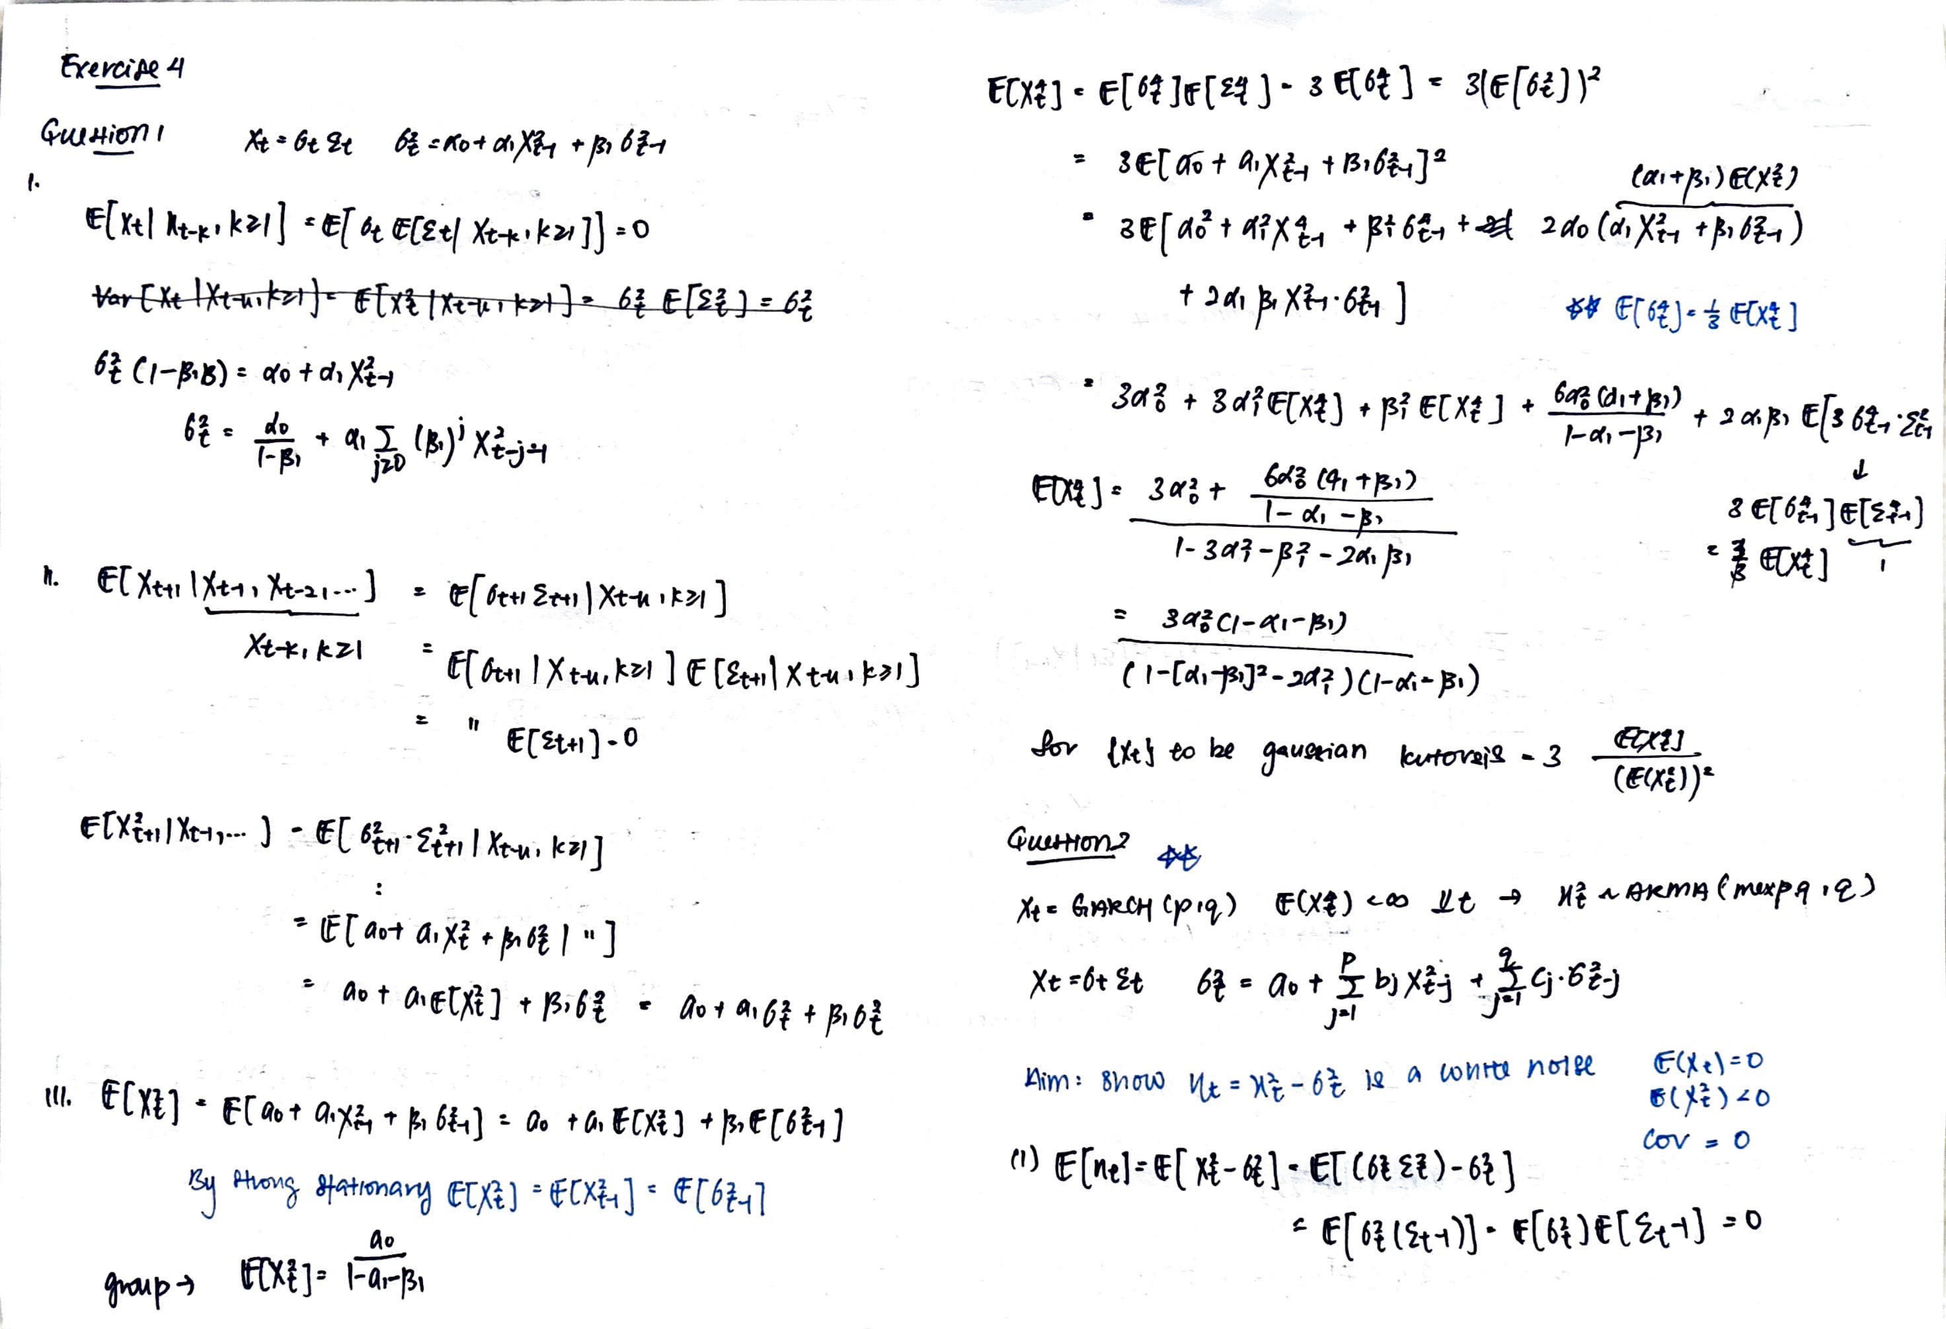 Exercise 4
Question 1 Xt = σt εt σt² = α0 + α1 X²t-1 + β1 σ²t-1
i.
E[Xt | Xt-k, k≥1] = E[σt E[εt | Xt-k, k≥1]] = 0
Var[Xt | Xt-k, k≥1] = E[Xt² | Xt-k, k≥1] = σt² E[εt²] = σt²
σt² (1-β1B) = α0 + α1 X²t-1
σt² = α0/(1-β1) + α1 Σj≥0 (β1)^j X²t-j-1
ii. E[Xt+1 | Xt-1, Xt-2, ...] = E[σt+1 εt+1 | Xt-k, k≥1]
Xt-k, k≥1 = E[σt+1 | Xt-k, k≥1] E[εt+1 | Xt-k, k≥1]
= " E[εt+1] = 0
E[X²t+1 | Xt-1, ...] = E[σ²t+1 · ε²t+1 | Xt-k, k≥1]
:
= E[a0 + a1 Xt² + β1 σt² | "]
= a0 + a1 E[Xt²] + β1 σt² = a0 + a1 σt² + β1 σt²
iii. E[Xt²] = E[a0 + a1 X²t-1 + β1 σ²t-1] = a0 + a1 E[Xt²] + β1 E[σ²t-1]
By strong stationary E[Xt²] = E[X²t-1] = E[σ²t-1]
group → E[Xt²] = a0/(1-a1-β1)
E[Xt⁴] = E[σt⁴] E[εt⁴] = 3 E[σt⁴] = 3(E[σt²])²
= 3E[α0 + α1 X²t-1 + β1 σ²t-1]²
(α1+β1) E(Xt²)
= 3E[α0² + α1² X⁴t-1 + β1² σ⁴t-1 + 2α0 (α1 X²t-1 + β1 σ²t-1)
+ 2α1 β1 X²t-1 · σ²t-1]
** E[σt⁴] = 1/3 E[Xt⁴]
= 3α0² + 3α1² E[Xt⁴] + β1² E[Xt⁴] + 6α0²(α1+β1)/(1-α1-β1) + 2α1β1 E[3 σ⁴t-1 · ε²t-1
↓
E[Xt⁴] = (3α0² + 6α0²(α1+β1)/(1-α1-β1)) / (1-3α1²-β1²-2α1β1)
3 E[σ⁴t-1] E[ε²t-1]
= 3/3 E[Xt⁴] 1
= 3α0²(1-α1-β1) / (1-[α1-β1]²-2α1²)(1-α1-β1)
for {Xt} to be gaussian kutorsis = 3 E[Xt⁴]/(E(Xt²))²
Question 2 **
Xt = GARCH (p,q) E(Xt⁴) <∞ ∀t → Xt² ~ ARMA (maxp,q , q)
Xt = σt εt σt² = a0 + Σ(j=1 to p) bj X²t-j + Σ(j=1 to q) Cj · σ²t-j
Aim: show nt = Xt² - σt² is a white noise E(Xt) = 0
E(Xt²) < 0
Cov = 0
(1) E[nt] = E[Xt² - σt²] = E[(σt² εt²) - σt²]
= E[σt²(εt-1)] = E[σt²] E[εt-1] = 0